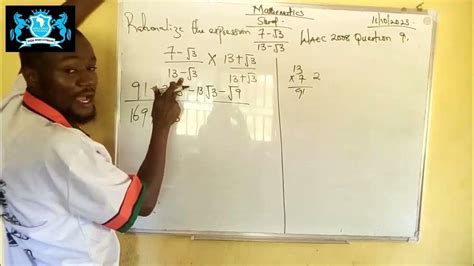 Mathematics
Surd
11/10/2023
Rationalize the expression 7-√3 / 13-√3
WAEC 2008 Question 9.
7-√3 / 13-√3 × 13+√3 / 13+√3
91 3 -13√3 -√9
169
13
×7 2
91